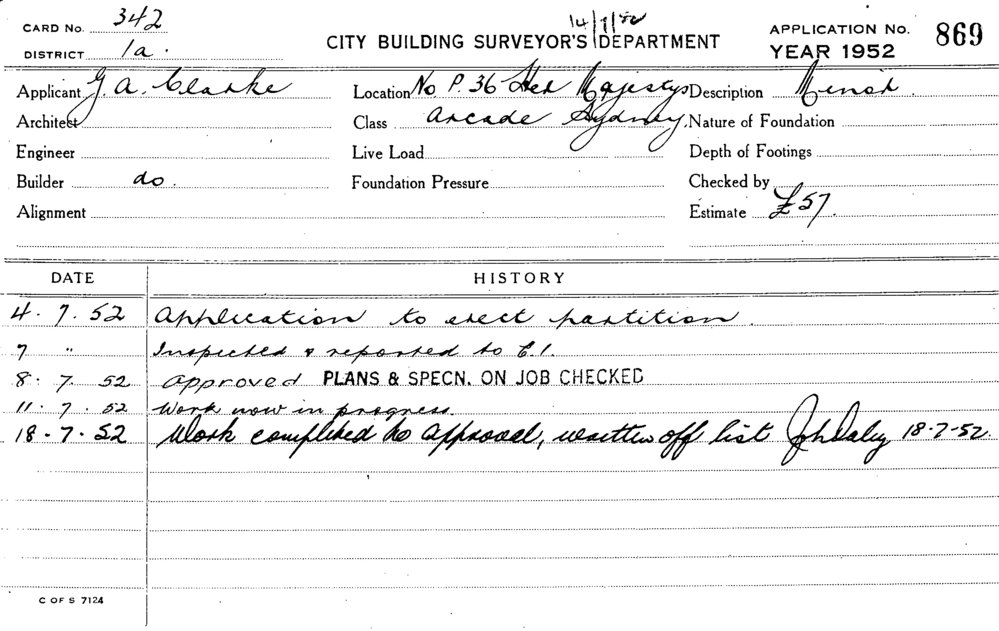 CARD No. 342
DISTRICT 1a.
14/7/52
CITY BUILDING SURVEYOR'S DEPARTMENT
APPLICATION No. 869
YEAR 1952
Applicant G. A. Clarke
Location No. P. 36 Her Majestys
Description Minor.
Architect
Class Arcade Sydney.
Nature of Foundation
Engineer
Live Load
Depth of Footings
Builder do.
Foundation Pressure
Checked by
Alignment
Estimate £57.
DATE HISTORY
4. 7. 52 Application to erect partition.
7 " Inspected & reported to C.I.
8. 7. 52 Approved PLANS & SPECN. ON JOB CHECKED
11. 7. 52 Work now in progress.
18-7-52 Work completed to approval, written off list JohDaley 18-7-52.
C OF S 7124